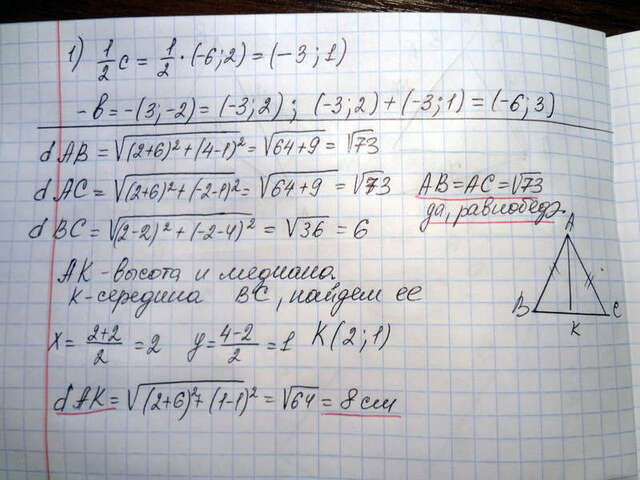 1) 1/2 c = 1/2 · (-6; 2) = (-3; 1)
- в = -(3; -2) = (-3; 2) ; (-3; 2) + (-3; 1) = (-6; 3)
d AB = √(2+6)² + (4-1)² = √64+9 = √73
d AC = √(2+6)² + (-2-1)² = √64+9 = √73
AB = AC = √73
да, равнобедр.
d BC = √(2-2)² + (-2-4)² = √36 = 6
A
B
C
K
AK - высота и медиана.
K - середина BC, найдем ее
x = 2+2/2 = 2 y = 4-2/2 = 1 K(2; 1)
d AK = √(2+6)² + (1-1)² = √64 = 8 см